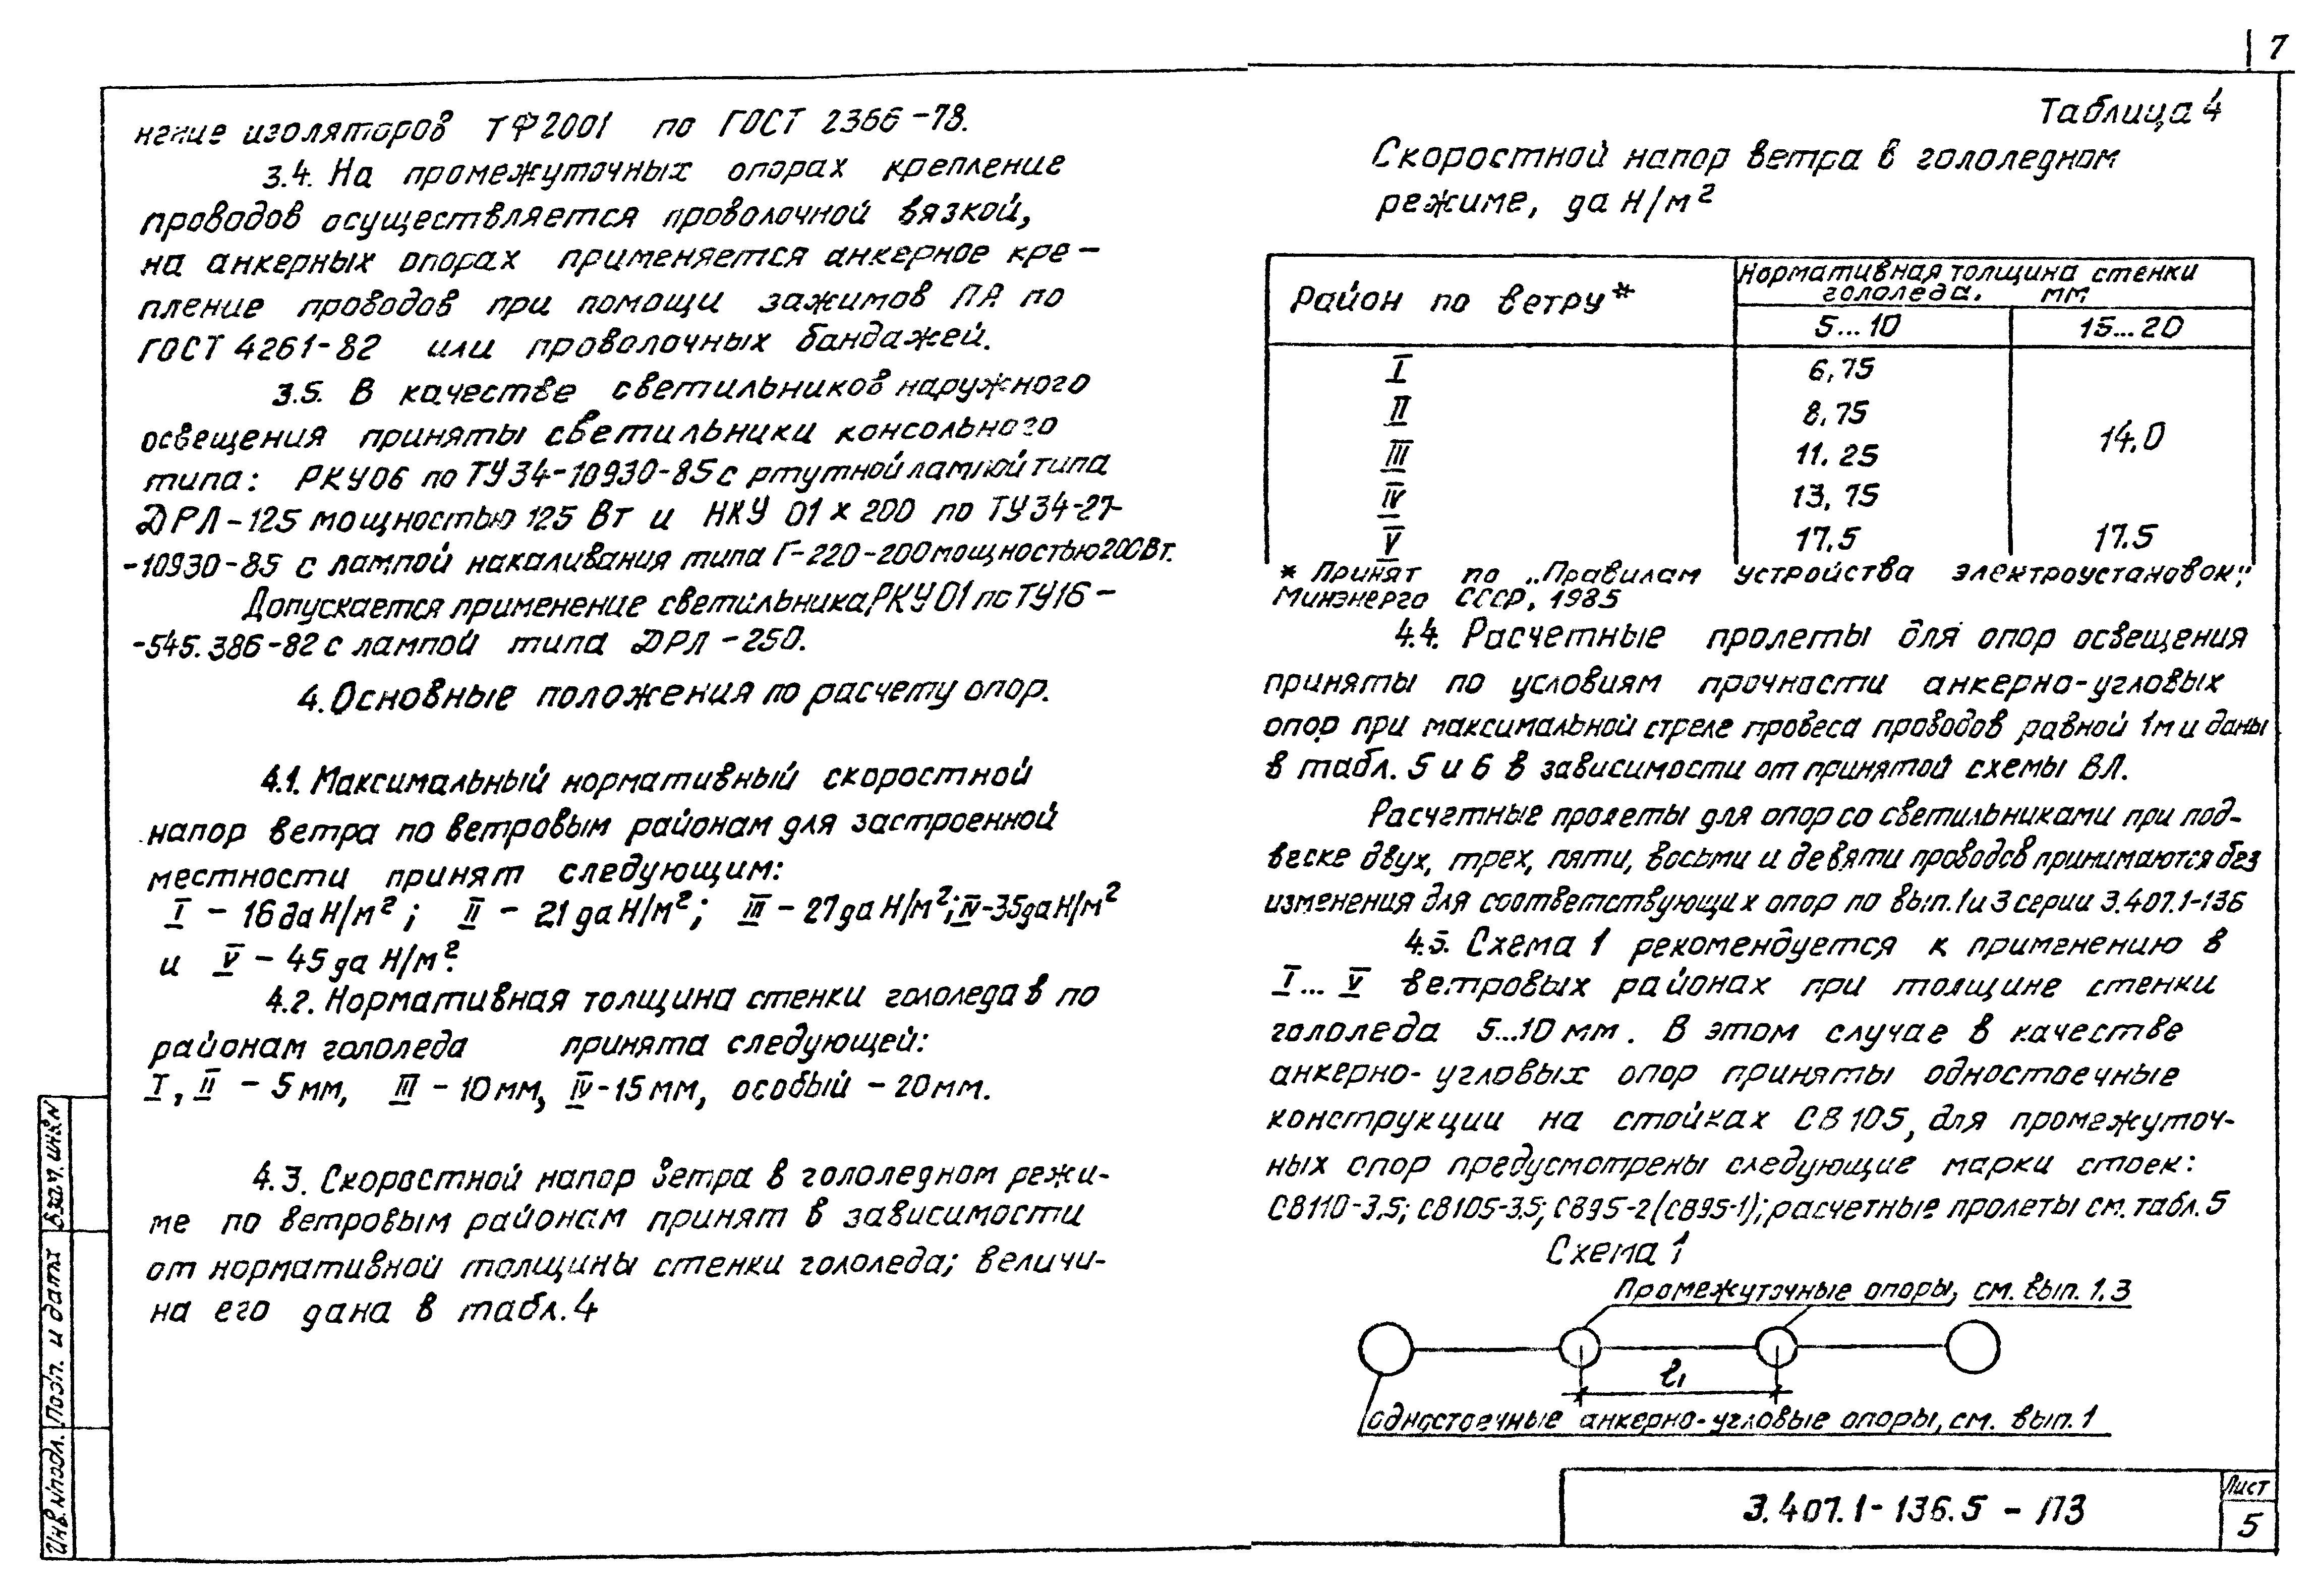 7
нение изоляторов ТФ2001 по ГОСТ 2366-78.
3.4. На промежуточных опорах крепление
проводов осуществляется проволочной вязкой,
на анкерных опорах применяется анкерное кре-
пление проводов при помощи зажимов ПА по
ГОСТ 4261-82 или проволочных бандажей.
3.5. В качестве светильников наружного
освещения приняты светильники консольного
типа: РКУ06 по ТУ34-10930-85 с ртутной лампой типа
ДРЛ-125 мощностью 125 Вт и НКУ 01 х 200 по ТУ34-27-
-10930-85 с лампой накаливания типа Г-220-200 мощностью 200 Вт.
Допускается применение светильника РКУ01 по ТУ16-
-545.386-82 с лампой типа ДРЛ-250.
4. Основные положения по расчету опор.
4.1. Максимальный нормативный скоростной
напор ветра по ветровым районам для застроенной
местности принят следующим:
I - 16 даН/м²; II - 21 даН/м²; III - 27 даН/м²; IV - 35 даН/м²
и V - 45 даН/м².
4.2. Нормативная толщина стенки гололеда в по
районам гололеда принята следующей:
I, II - 5 мм, III - 10 мм, IV - 15 мм, особый - 20 мм.
4.3. Скоростной напор ветра в гололедном режи-
ме по ветровым районам принят в зависимости
от нормативной толщины стенки гололеда; величи-
на его дана в табл. 4
Таблица 4
Скоростной напор ветра в гололедном
режиме, даН/м²
Район по ветру*
Нормативная толщина стенки
гололеда, мм
5...10 15...20
I 6,75
II 8,75
14.0
III 11.25
IV 13,75
V 17.5 17.5
* Принят по „Правилам устройства электроустановок",
Минэнерго СССР, 1985
4.4. Расчетные пролеты для опор освещения
приняты по условиям прочности анкерно-угловых
опор при максимальной стреле провеса проводов равной 1м и даны
в табл. 5 и 6 в зависимости от принятой схемы ВЛ.
Расчетные пролеты для опор со светильниками при под-
веске двух, трех, пяти, восьми и девяти проводов принимаются без
изменения для соответствующих опор по вып. 1 и 3 серии 3.407.1-136
4.5. Схема 1 рекомендуется к применению в
I... V ветровых районах при толщине стенки
гололеда 5...10 мм. В этом случае в качестве
анкерно-угловых опор приняты одностоечные
конструкции на стойках СВ 105, для промежуточ-
ных опор предусмотрены следующие марки стоек:
СВ110-3.5; СВ105-3.5; СВ95-2 (СВ95-1); расчетные пролеты см. табл. 5
Схема 1
Промежуточные опоры, см. вып. 1.3
ℓ₁
одностоечные анкерно-угловые опоры, см. вып. 1
Инв. № подл. Подп. и дата Взам. инв. №
3.407.1-136.5-ПЗ
Лист
5